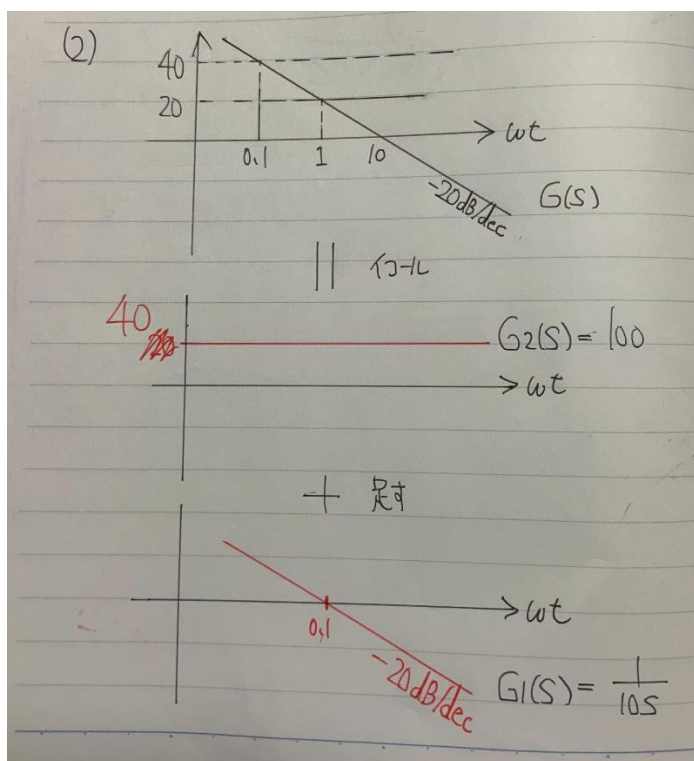 (2)
40
20
0.1 1 10
ωt
-20dB/dec
G(S)
|| イコール
40
G2(S)=100
ωt
+ 足す
ωt
0.1
-20dB/dec
G1(S)= 1/10S